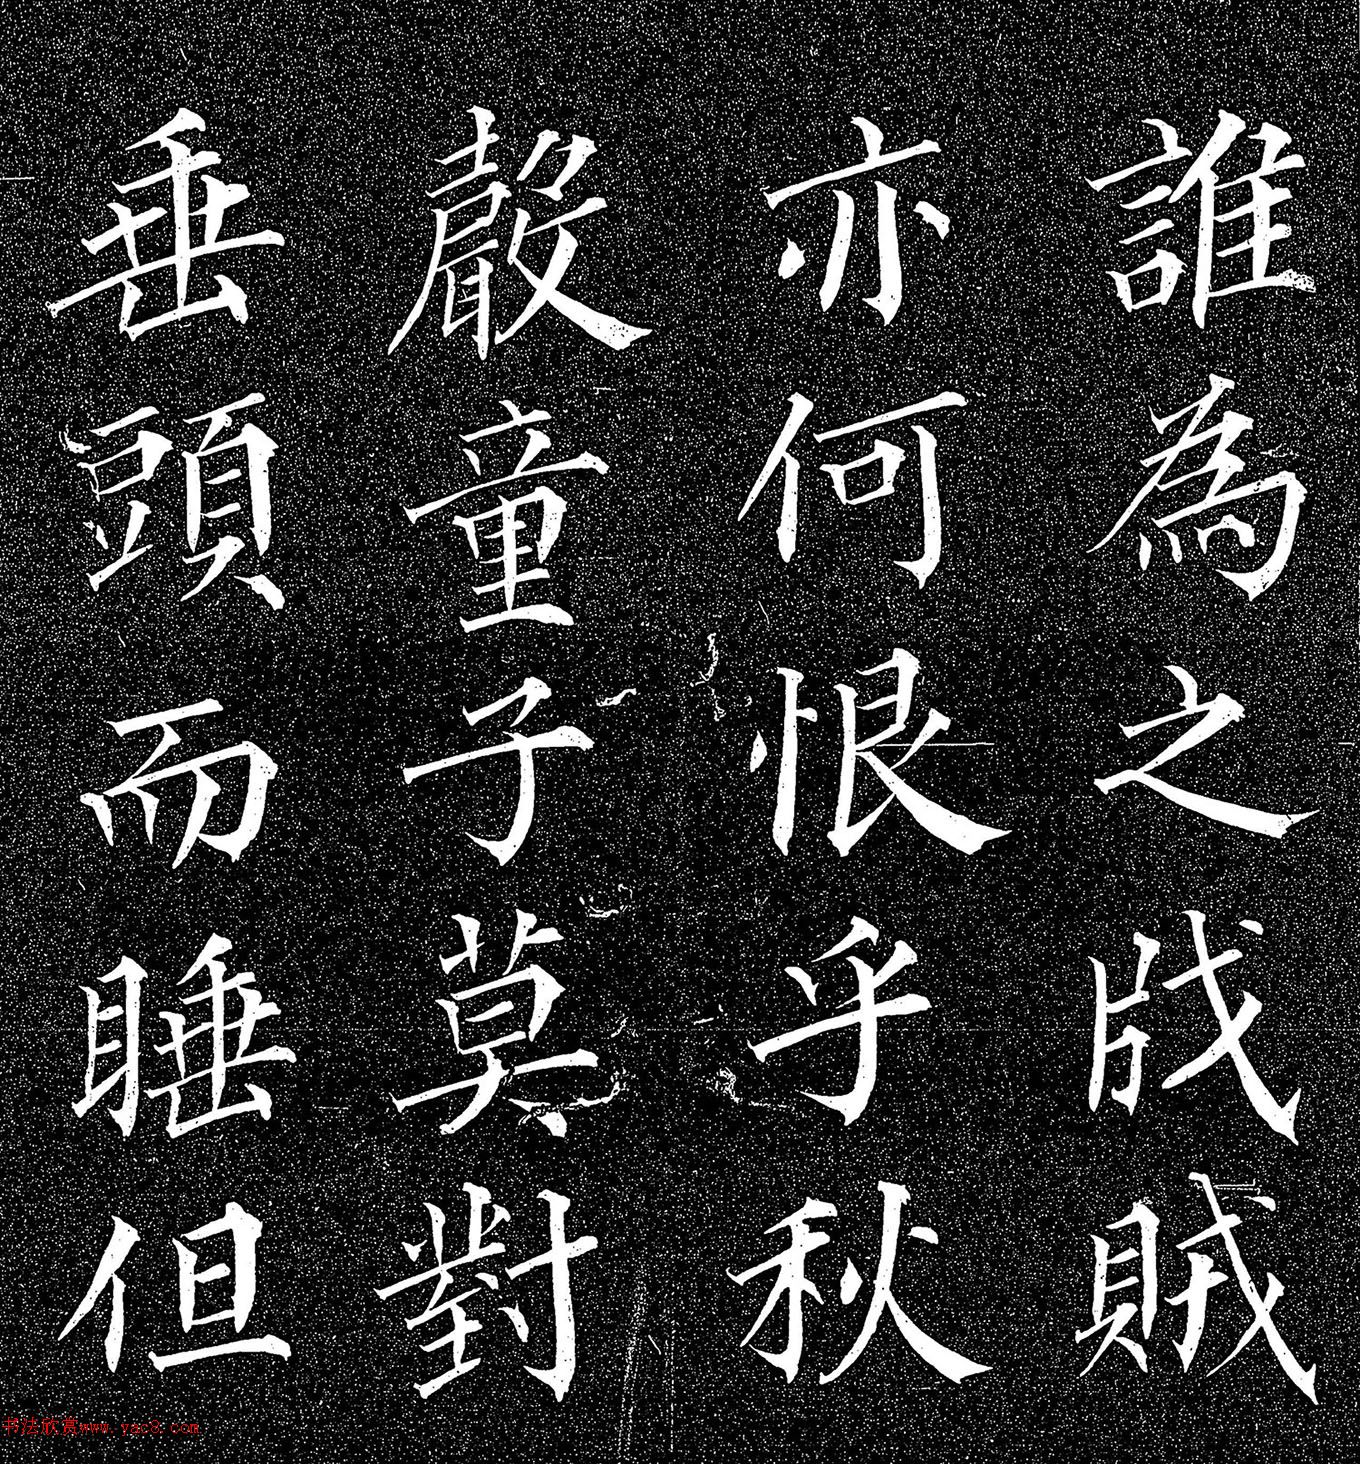 誰為之戕賊
亦何恨乎秋
聲童子莫對
垂頭而睡但
书法欣赏www.yac8.com